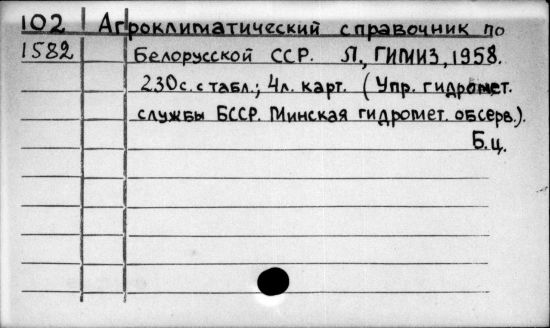 102 Агроклиматический справочник по
1582 Белорусской ССР. Л., ГИМИЗ, 1958.
230с. с табл.; 4л. карт. (Упр. гидромет.
службы БССР. Минская гидромет. обсерв.).
Б.ц.